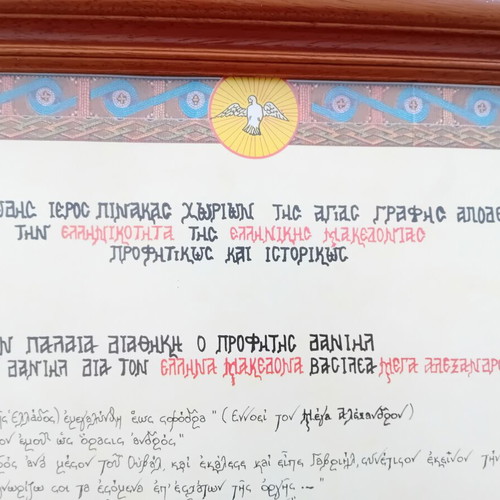 ΙΕΡΟΣ ΠΙΝΑΚΑΣ ΧΩΡΙΩΝ ΤΗΣ ΑΓΙΑΣ ΓΡΑΦΗΣ ΑΠΟΔΕ
ΤΗΝ ΕΛΛΗΝΙΚΟΤΗΤΑ ΤΗΣ ΕΛΛΗΝΙΚΗΣ ΜΑΚΕΔΟΝΙΑΣ
ΠΡΟΦΗΤΙΚΩΣ ΚΑΙ ΙΣΤΟΡΙΚΩΣ
Ν ΠΑΛΑΙΑ ΔΙΑΘΗΚΗ Ο ΠΡΟΦΗΤΗΣ ΔΑΝΙΗΛ
ΔΑΝΙΗΛ ΔΙΑ ΤΟΝ ΕΛΛΗΝΑ ΜΑΚΕΔΟΝΑ ΒΑΣΙΛΕΑ ΜΕΓΑ ΑΛΕΞΑΝΔΡΟ
Ἑλλάδος) ἐμεγαλύνθη ἕως σφόδρα" (Εννοεί τον Μέγα Αλέξανδρον)
ον ἐμοῦ ὡς ὅρασις ἀνδρός"
ρός ἀνά μέσον τοῦ Οὐβάλ, καί ἐκάλεσε καί εἶπε Γαβριήλ, συνέτισον ἐκεῖνον τήν
νωρίζω σοι τα ἐσόμενα ἐπ' ἐσχάτων τῆς ὀργῆς ..."